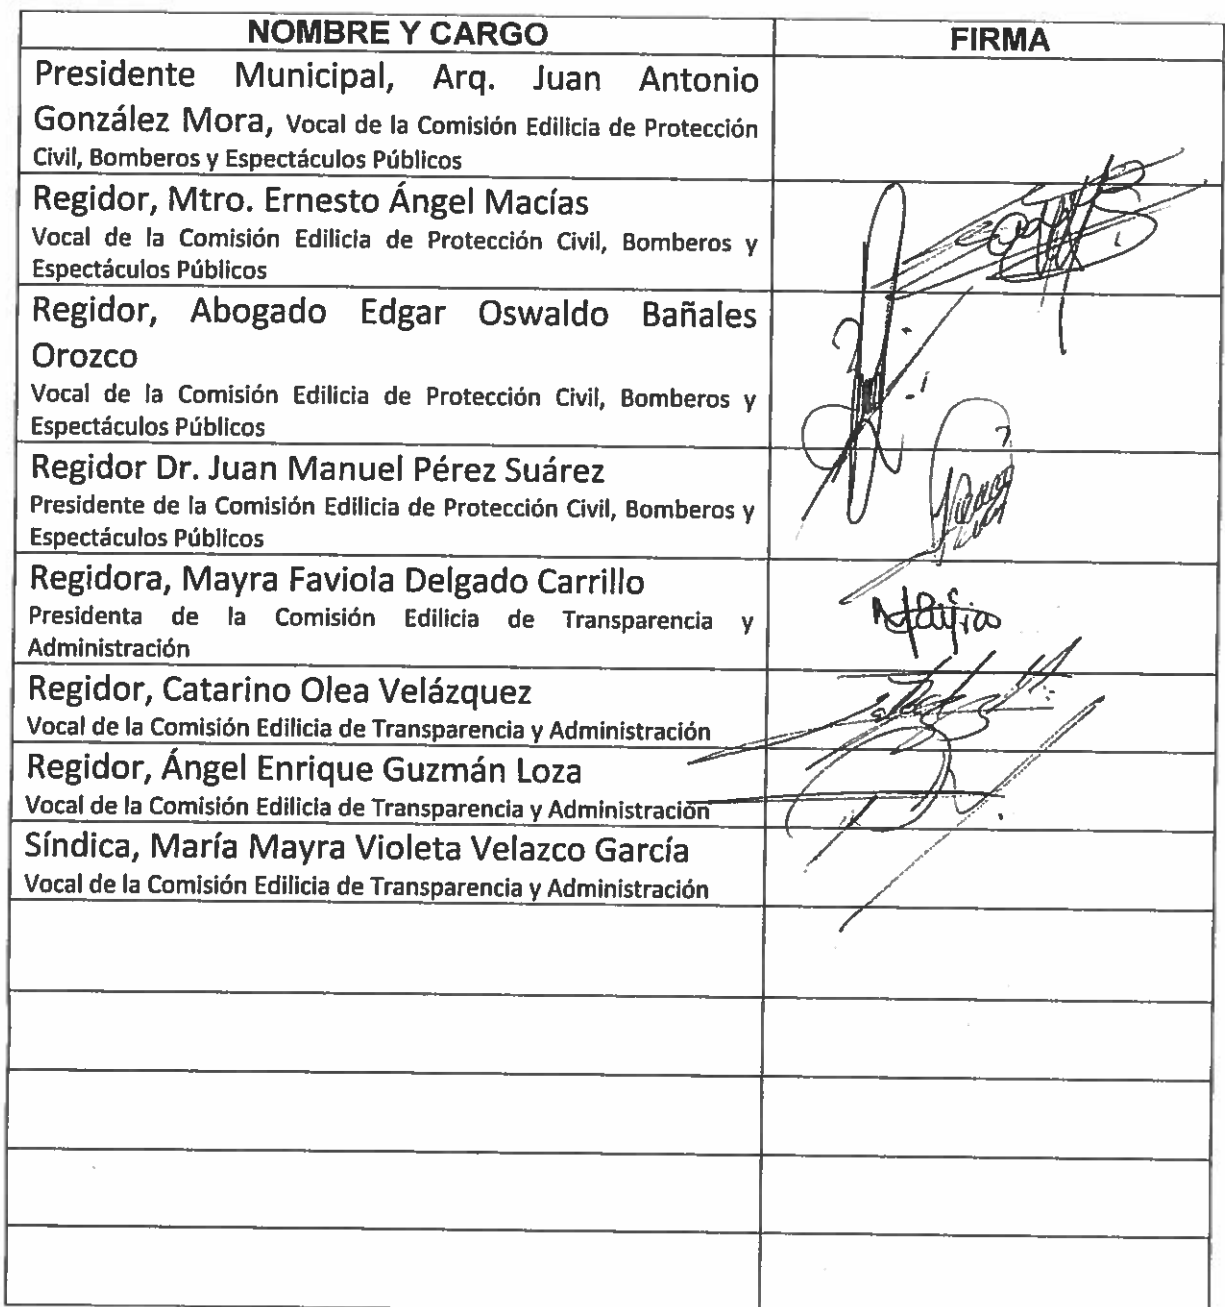 NOMBRE Y CARGO
FIRMA
Presidente Municipal, Arq. Juan Antonio
González Mora, Vocal de la Comisión Edilicia de Protección
Civil, Bomberos y Espectáculos Públicos
Regidor, Mtro. Ernesto Ángel Macías
Vocal de la Comisión Edilicia de Protección Civil, Bomberos y
Espectáculos Públicos
Regidor, Abogado Edgar Oswaldo Bañales
Orozco
Vocal de la Comisión Edilicia de Protección Civil, Bomberos y
Espectáculos Públicos
Regidor Dr. Juan Manuel Pérez Suárez
Presidente de la Comisión Edilicia de Protección Civil, Bomberos y
Espectáculos Públicos
Regidora, Mayra Faviola Delgado Carrillo
Presidenta de la Comisión Edilicia de Transparencia y
Administración
Regidor, Catarino Olea Velázquez
Vocal de la Comisión Edilicia de Transparencia y Administración
Regidor, Ángel Enrique Guzmán Loza
Vocal de la Comisión Edilicia de Transparencia y Administración
Síndica, María Mayra Violeta Velazco García
Vocal de la Comisión Edilicia de Transparencia y Administración